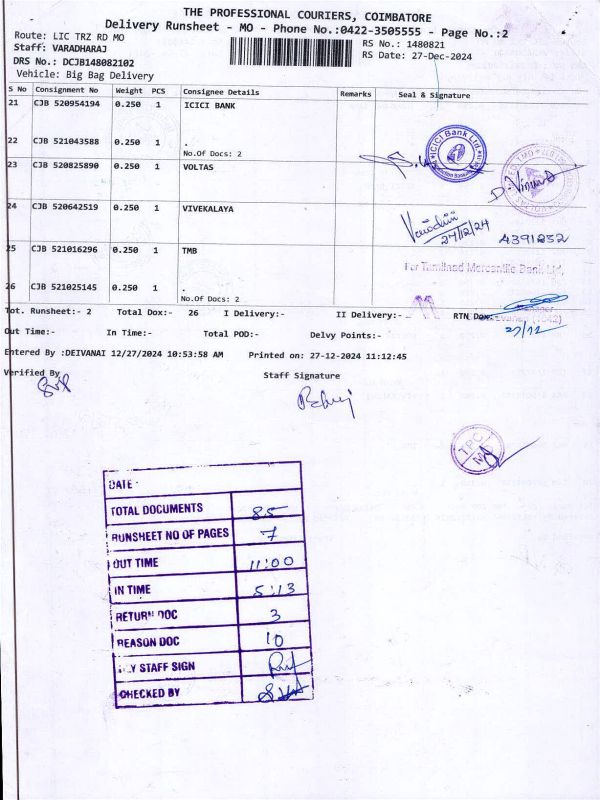 THE PROFESSIONAL COURIERS, COIMBATORE
Delivery Runsheet - MO - Phone No.:0422-3505555 - Page No.:2
Route: LIC TRZ RD MO
RS No.: 1480821
Staff: VARADHARAJ
RS Date: 27-Dec-2024
DRS No.: DCJB148082102
Vehicle: Big Bag Delivery
S No Consignment No Weight PCS Consignee Details Remarks Seal & Signature
21 CJB 520954194 0.250 1 ICICI BANK
22 CJB 521043588 0.250 1 .
No.Of Docs: 2
ICICI Bank Ltd
23 CJB 520825890 0.250 1 VOLTAS
24 CJB 520642519 0.250 1 VIVEKALAYA
27/12/24
4391252
25 CJB 521016296 0.250 1 TMB
For Tamilnad Mercantile Bank Ltd.
26 CJB 521025145 0.250 1 .
No.Of Docs: 2
Tot. Runsheet:- 2 Total Dox:- 26 I Delivery:- II Delivery:- RTN Dox:-
27/12
Out Time:- In Time:- Total POD:- Delvy Points:-
Entered By :DEIVANAI 12/27/2024 10:53:58 AM Printed on: 27-12-2024 11:12:45
Verified By
Staff Signature
TPC
MO
DATE
TOTAL DOCUMENTS 85
RUNSHEET NO OF PAGES 7
OUT TIME 11:00
IN TIME 5:13
RETURN DOC 3
REASON DOC 10
STAFF SIGN
CHECKED BY